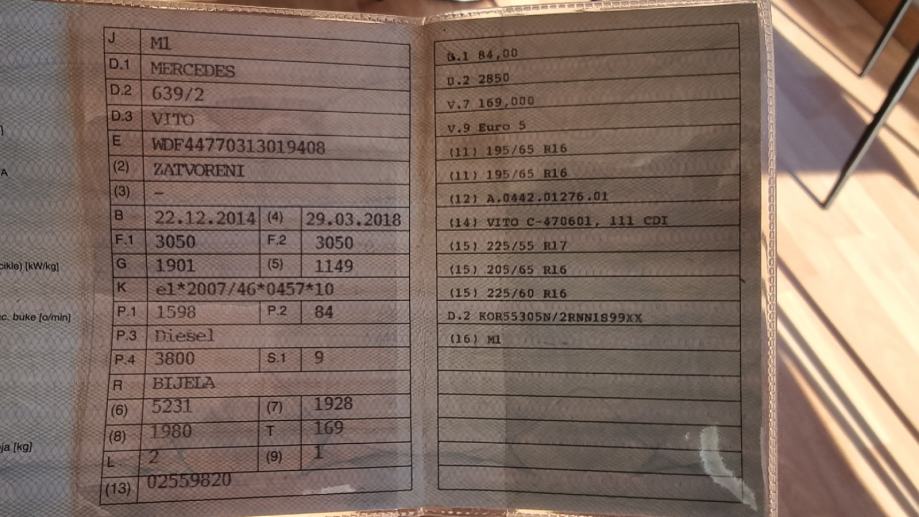 J M1
D.1 MERCEDES
D.2 639/2
D.3 VITO
E WDF44770313019408
(2) ZATVORENI
(3) –
B 22.12.2014 (4) 29.03.2018
F.1 3050 F.2 3050
G 1901 (5) 1149
K e1*2007/46*0457*10
P.1 1598 P.2 84
P.3 Diesel
P.4 3800 S.1 9
R BIJELA
(6) 5231 (7) 1928
(8) 1980 T 169
L 2 (9) 1
(13) 02559820
84,00
D.2 2850
V.7 169,000
V.9 Euro 5
(11) 195/65 R16
(11) 195/65 R16
(12) A.0442.01276.01
(14) VITO C-470601, 111 CDI
(15) 225/55 R17
(15) 205/65 R16
(15) 225/60 R16
D.2 KOR55305N/2RNN1S99XX
(16) M1
]
A
cikle) [kW/kg]
c. buke [o/min]
ja [kg]